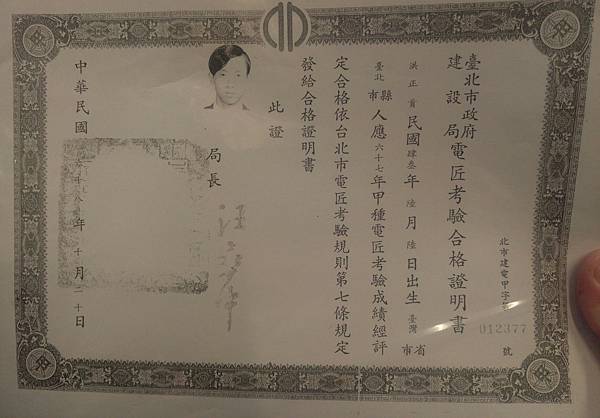 臺北市政府
建設局
電匠考驗合格證明書
北市建電甲字第
012377
號
洪正
民國肆叁年陸月陸日出生臺灣省市
臺北縣市人應六十七年甲種電匠考驗成績經評
定合格依台北市電匠考驗規則第七條規定
發給合格證明書
此證
局長
中華民國
年十月二十日